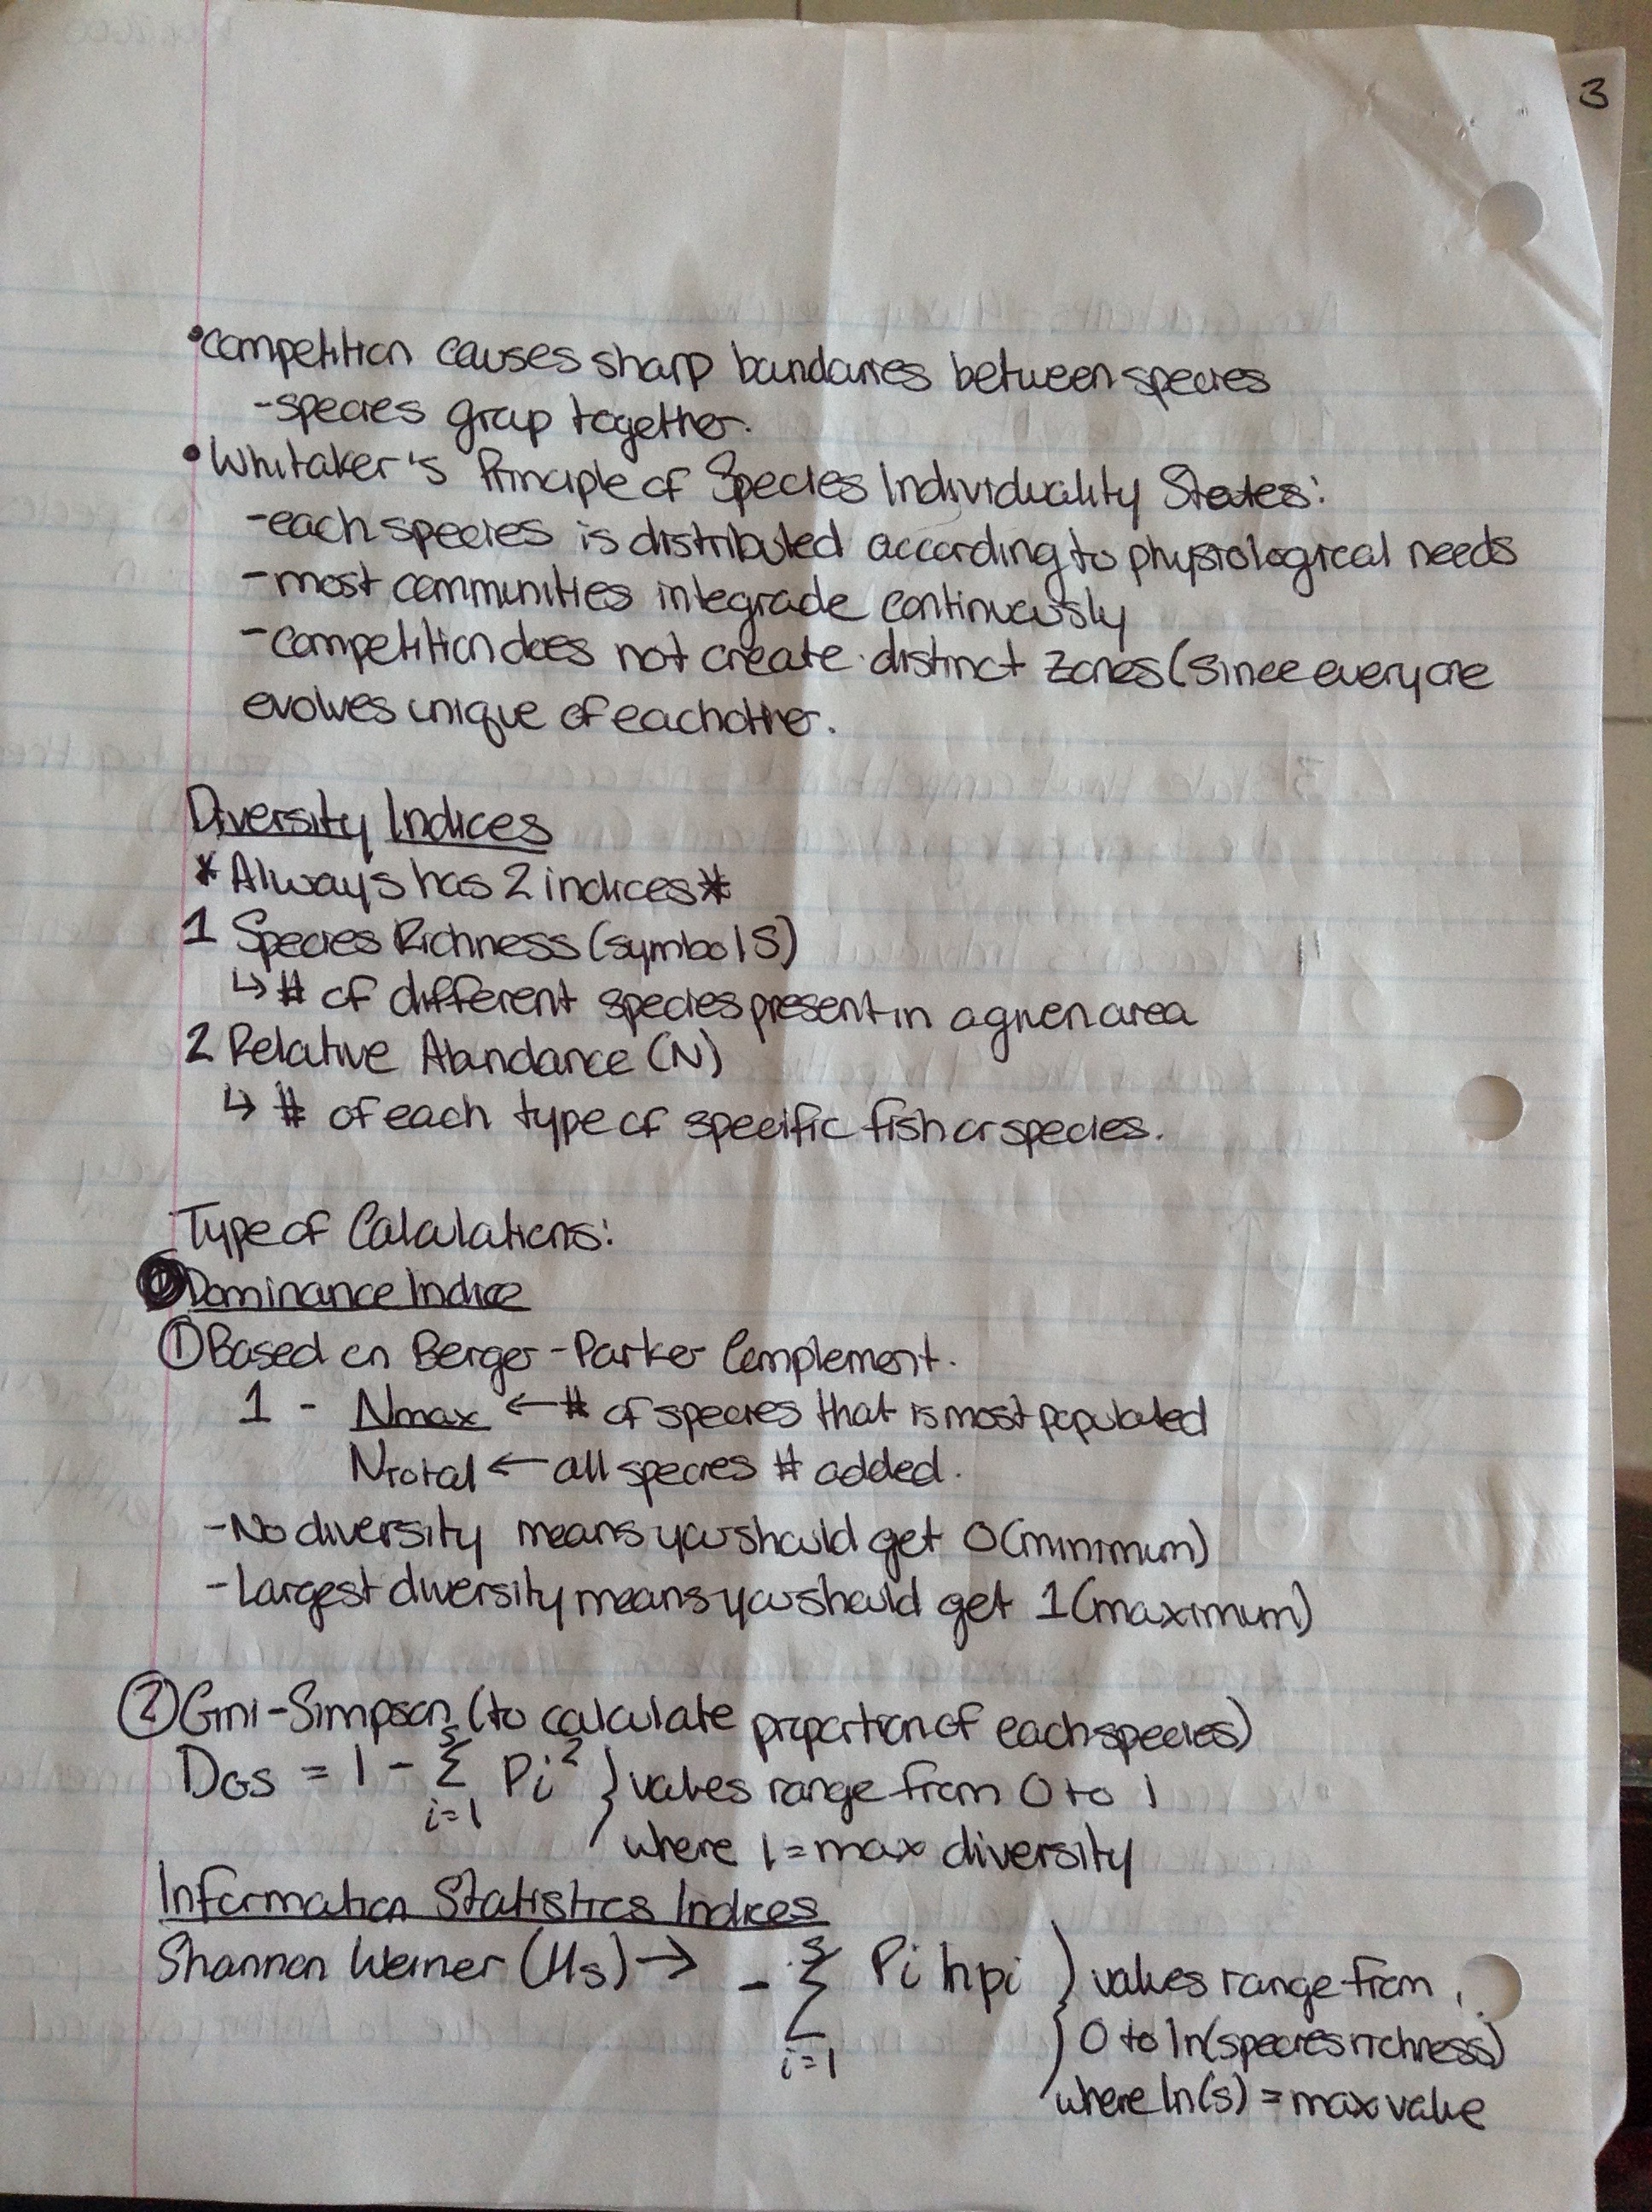 3
•Competition causes sharp boundaries between species
-species group together.
•Whitaker's Principle of Species Individuality States:
-each species is distributed according to physiological needs
-most communities integrade continuously
-competition does not create distinct zones (since everyone
evolves unique of eachother.
Diversity Indices
*Always has 2 indices*
1 Species Richness (symbol S)
↳ # of different species present in a given area
2 Relative Abundance (N)
↳ # of each type of specific fish or species.
Type of Calculations:
Dominance Indice
① Based on Berger-Parker Complement.
1 - Nmax ← # of species that is most populated
Ntotal ← all species # added.
-No diversity means you should get 0 (minimum)
-Largest diversity means you should get 1 (maximum)
② Gini-Simpson (to calculate proportion of each species)
DGS = 1 - s∑i=1 Pi² } values range from 0 to 1
where 1 = max diversity
Information Statistics Indices
Shannon Weiner (Hs) → - s∑i=1 Pi lnpi } values range from
0 to ln(species richness)
where ln(s) = max value